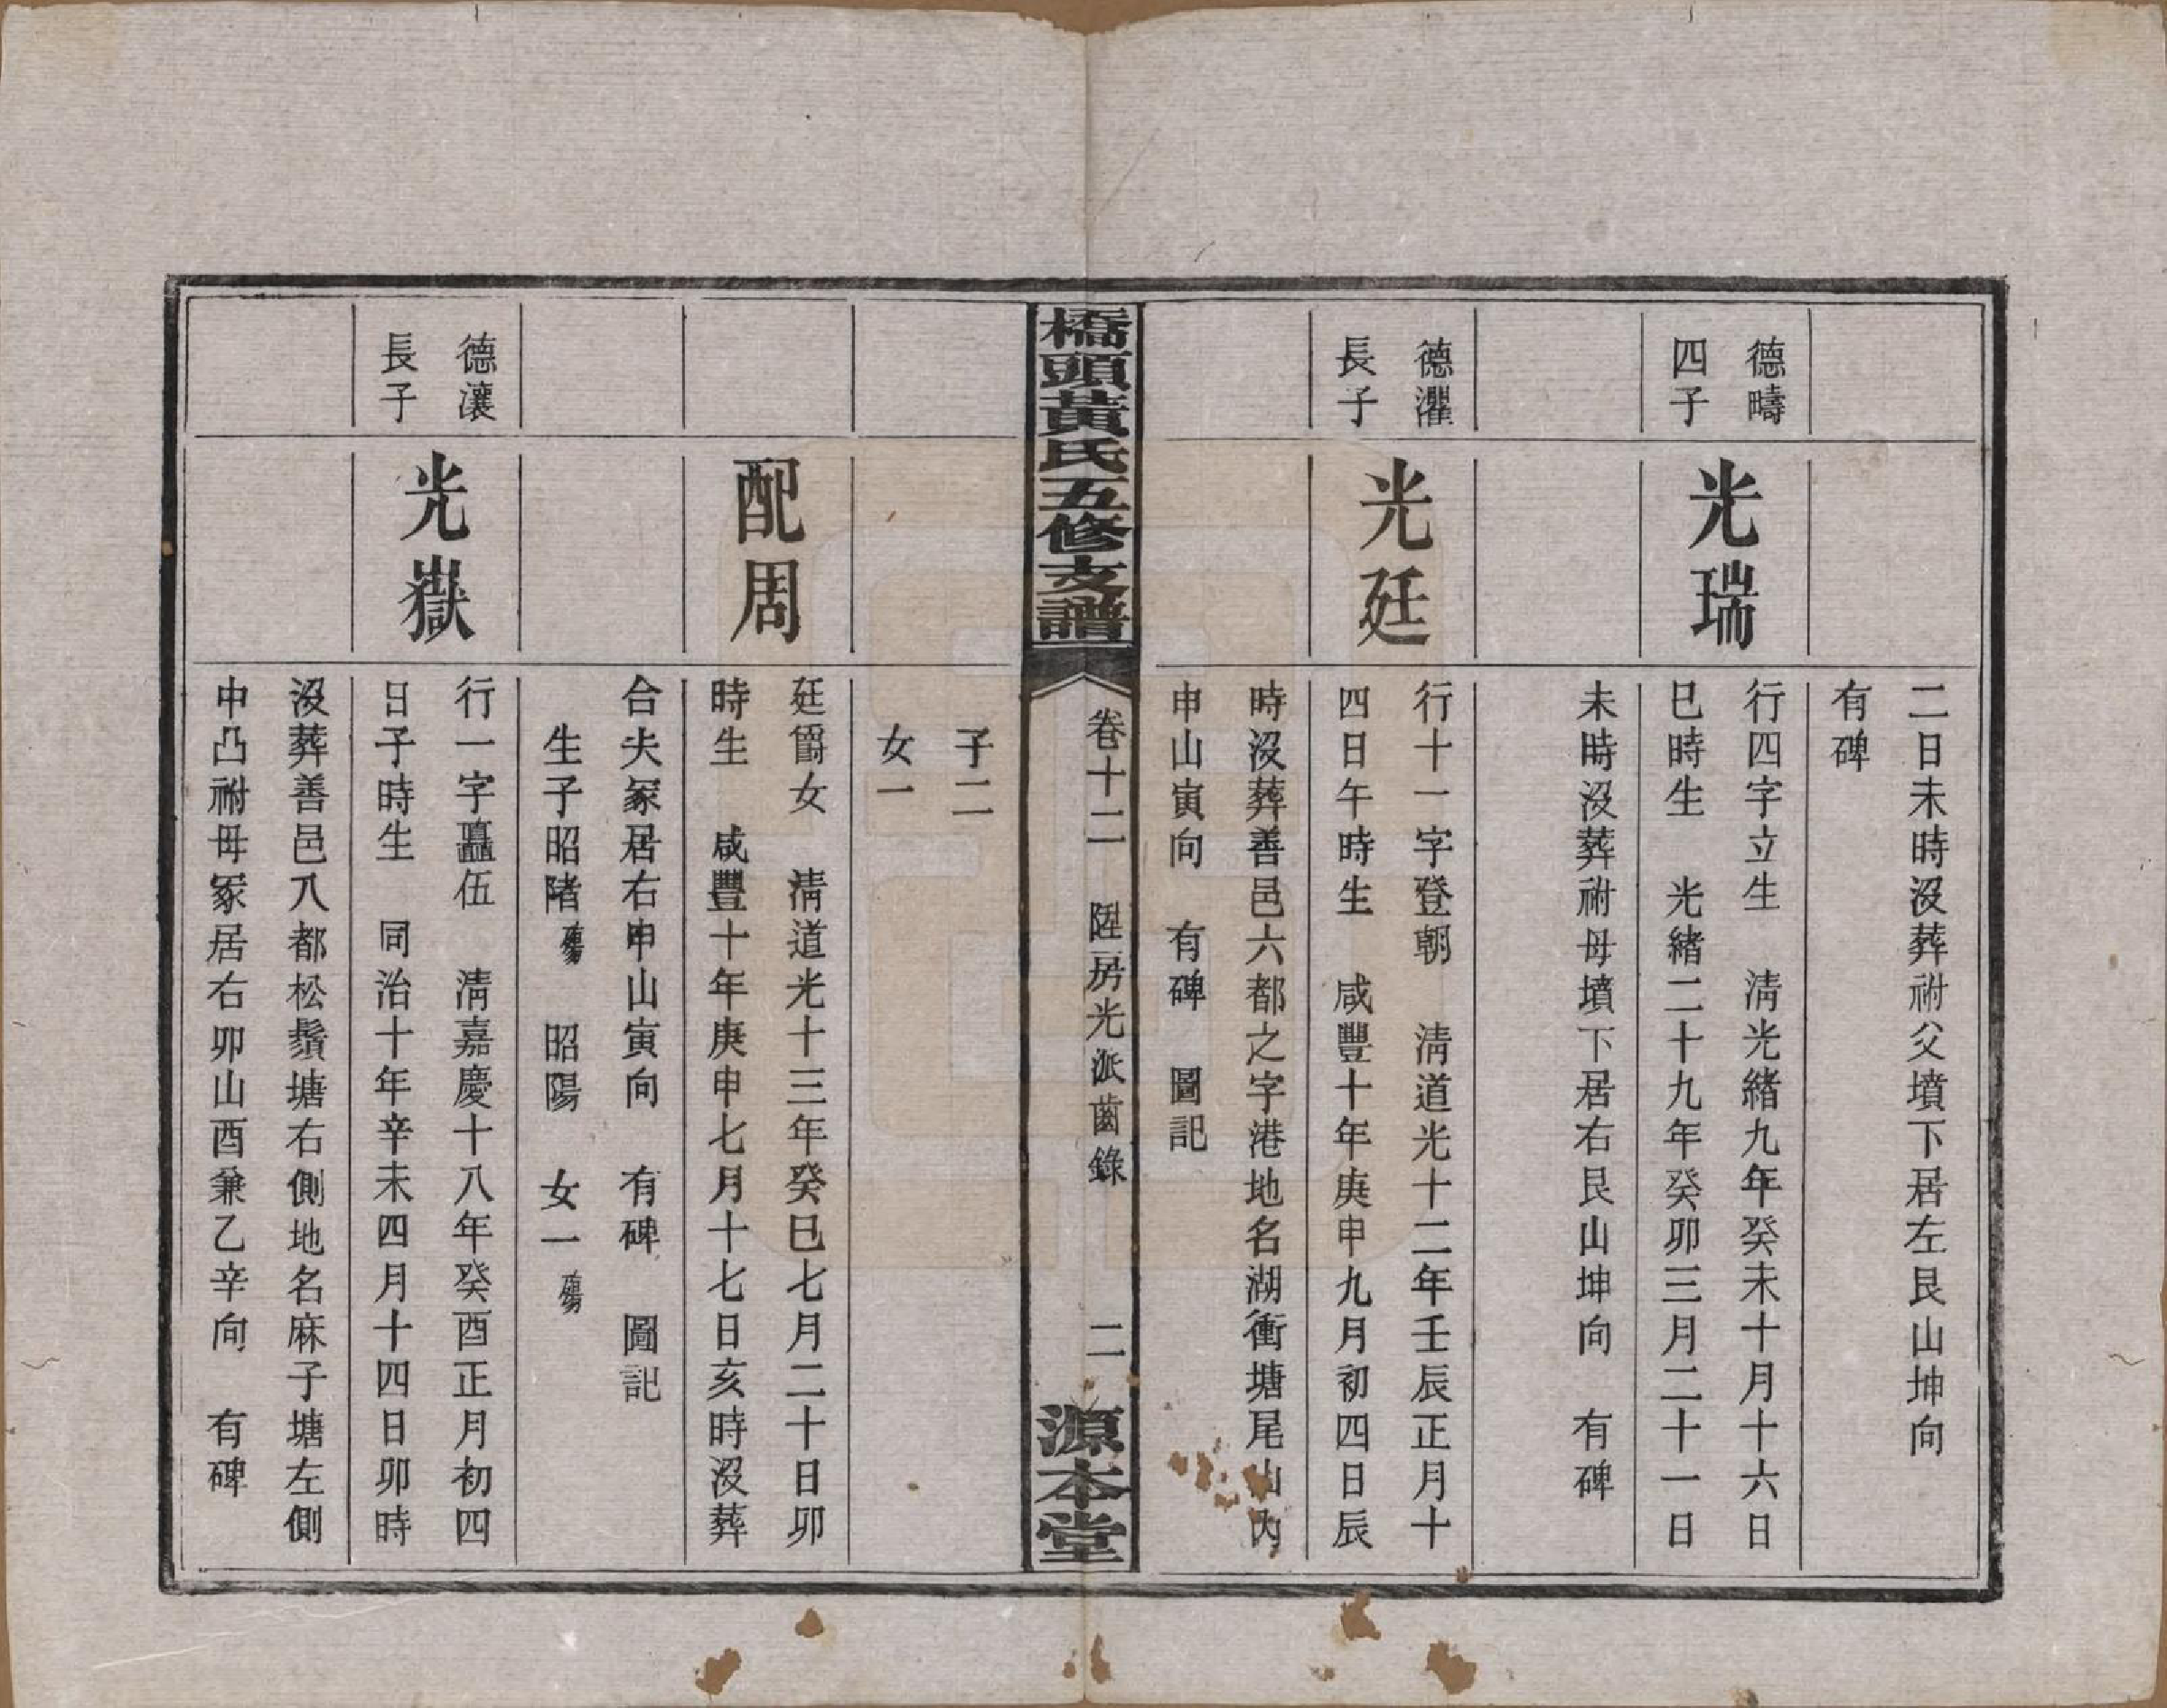 二日未時沒葬祔父墳下居左艮山坤向
有碑
德疇
四子
光瑞
行四字立生　清光緒九年癸未十月十六日
巳時生　光緒二十九年癸卯三月二十一日
未時沒葬祔母墳下居右艮山坤向　有碑
德濯
長子
光廷
行十一字登朝　清道光十二年壬辰正月十
四日午時生　咸豐十年庚申九月初四日辰
時沒葬善邑六都之字港地名湖衝塘尾山內
申山寅向　有碑　圖記
橋頭黃氏五修支譜
卷十二　陞房光派齒錄
二
源本堂
子二
女一
配周
廷爵女　清道光十三年癸巳七月二十日卯
時生　咸豐十年庚申七月十七日亥時沒葬
合夫冢居右申山寅向　有碑　圖記
生子昭睹殤　昭陽　女一殤
德瀼
長子
光嶽
行一字矗伍　清嘉慶十八年癸酉正月初四
日子時生　同治十年辛未四月十四日卯時
沒葬善邑八都松鬚塘右側地名麻子塘左側
中凸祔母冢居右卯山酉兼乙辛向　有碑